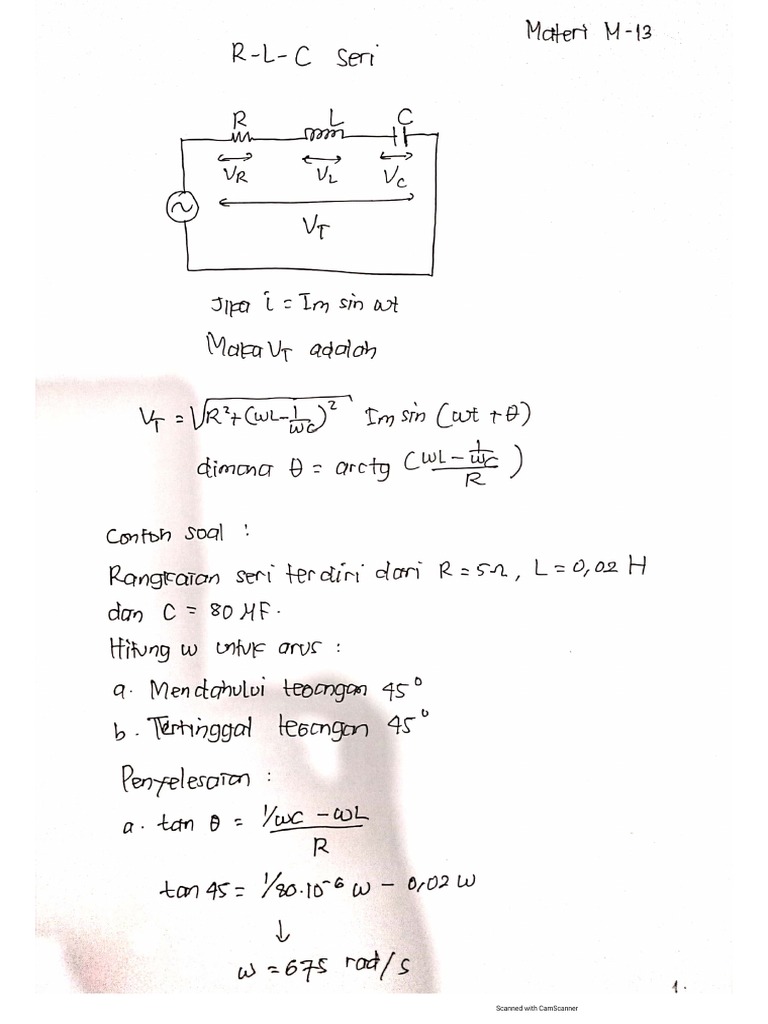 Materi M-13
R-L-C Seri
R L C
VR VL VC
VT
Jika i = Im sin ωt
Maka VT adalah
VT = √R²+(ωL-1/ωC)² Im sin (ωt + θ)
dimana θ = arctg (ωL - 1/ωC / R)
Contoh soal :
Rangkaian seri terdiri dari R = 5Ω, L = 0,02 H
dan C = 80 μF.
Hitung ω untuk arus :
a. Mendahului tegangan 45°
b. Tertinggal tegangan 45°
Penyelesaian :
a. tan θ = 1/ωC - ωL / R
tan 45 = 1/80.10⁻⁶ ω - 0,02 ω
↓
ω = 675 rad/s
1.
Scanned with CamScanner